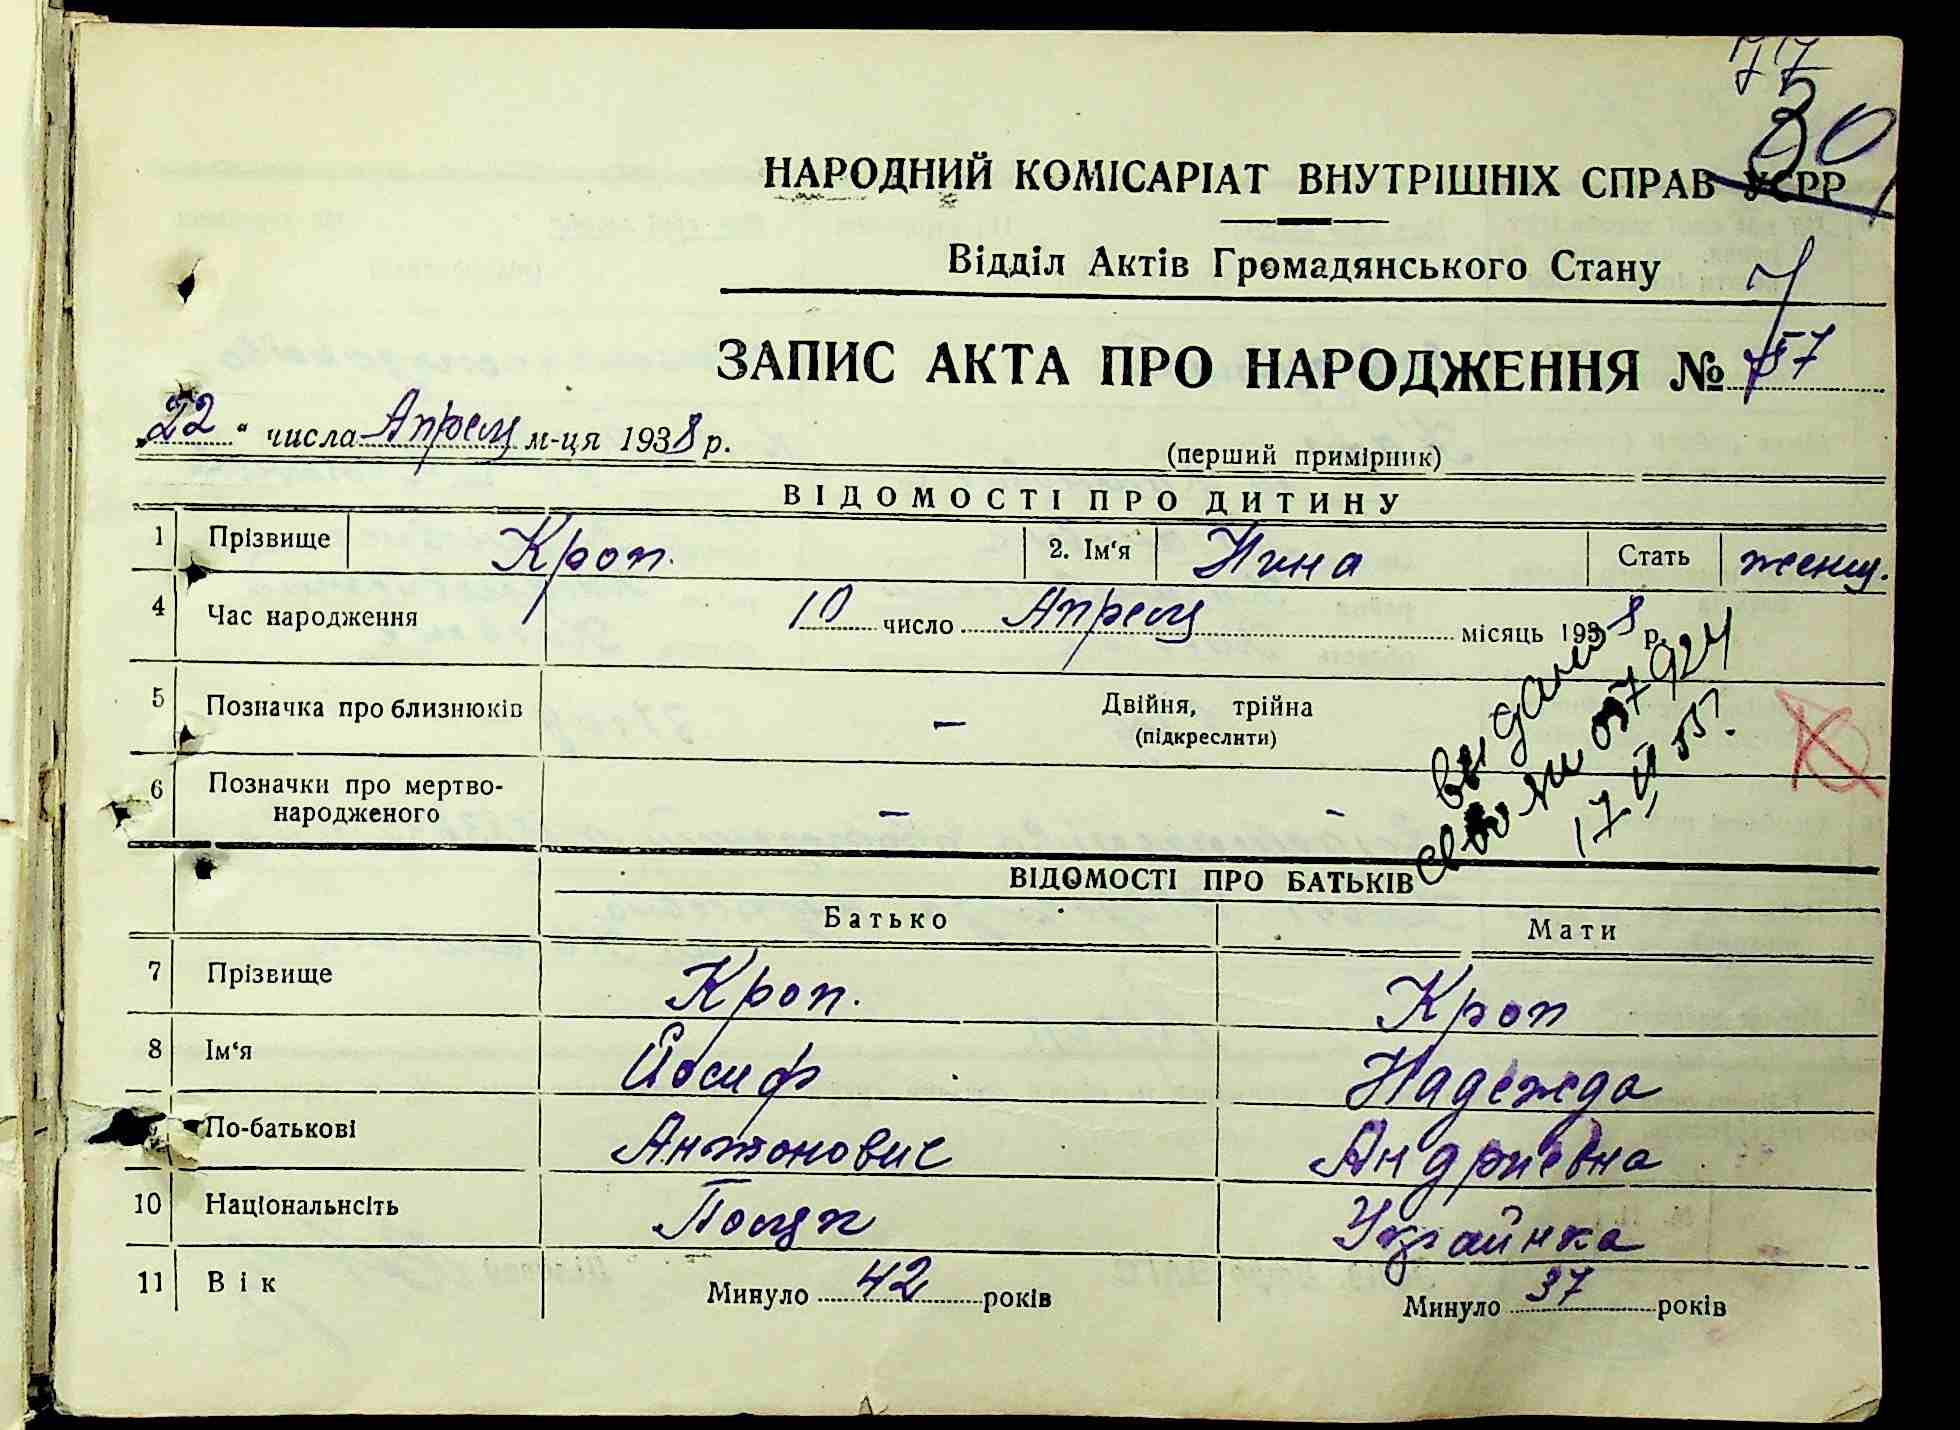 77
80
НАРОДНИЙ КОМІСАРІАТ ВНУТРІШНІХ СПРАВ УСРР
Відділ Актів Громадянського Стану
ЗАПИС АКТА ПРО НАРОДЖЕННЯ № 57
„22“ числа Апреля м-ця 1938 р.
(перший примірник)
ВІДОМОСТІ ПРО ДИТИНУ
1 Прізвище Кроп. 2. Ім‘я Нина Стать женщ.
4 Час народження 10 число Апреля місяць 1938 р.
5 Позначка про близнюків – Двійня, трійна
(підкреслити)
6 Позначки про мертво-
народженого – –
выдано
св во 057924
17 55
ВІДОМОСТІ ПРО БАТЬКІВ
Батько Мати
7 Прізвище Кроп. Кроп
8 Ім‘я Йосиф Надежда
По-батькові Антонович Андриевна
10 Національнсіть Поляк Украйнка
11 Вік Минуло 42 років Минуло 37 років